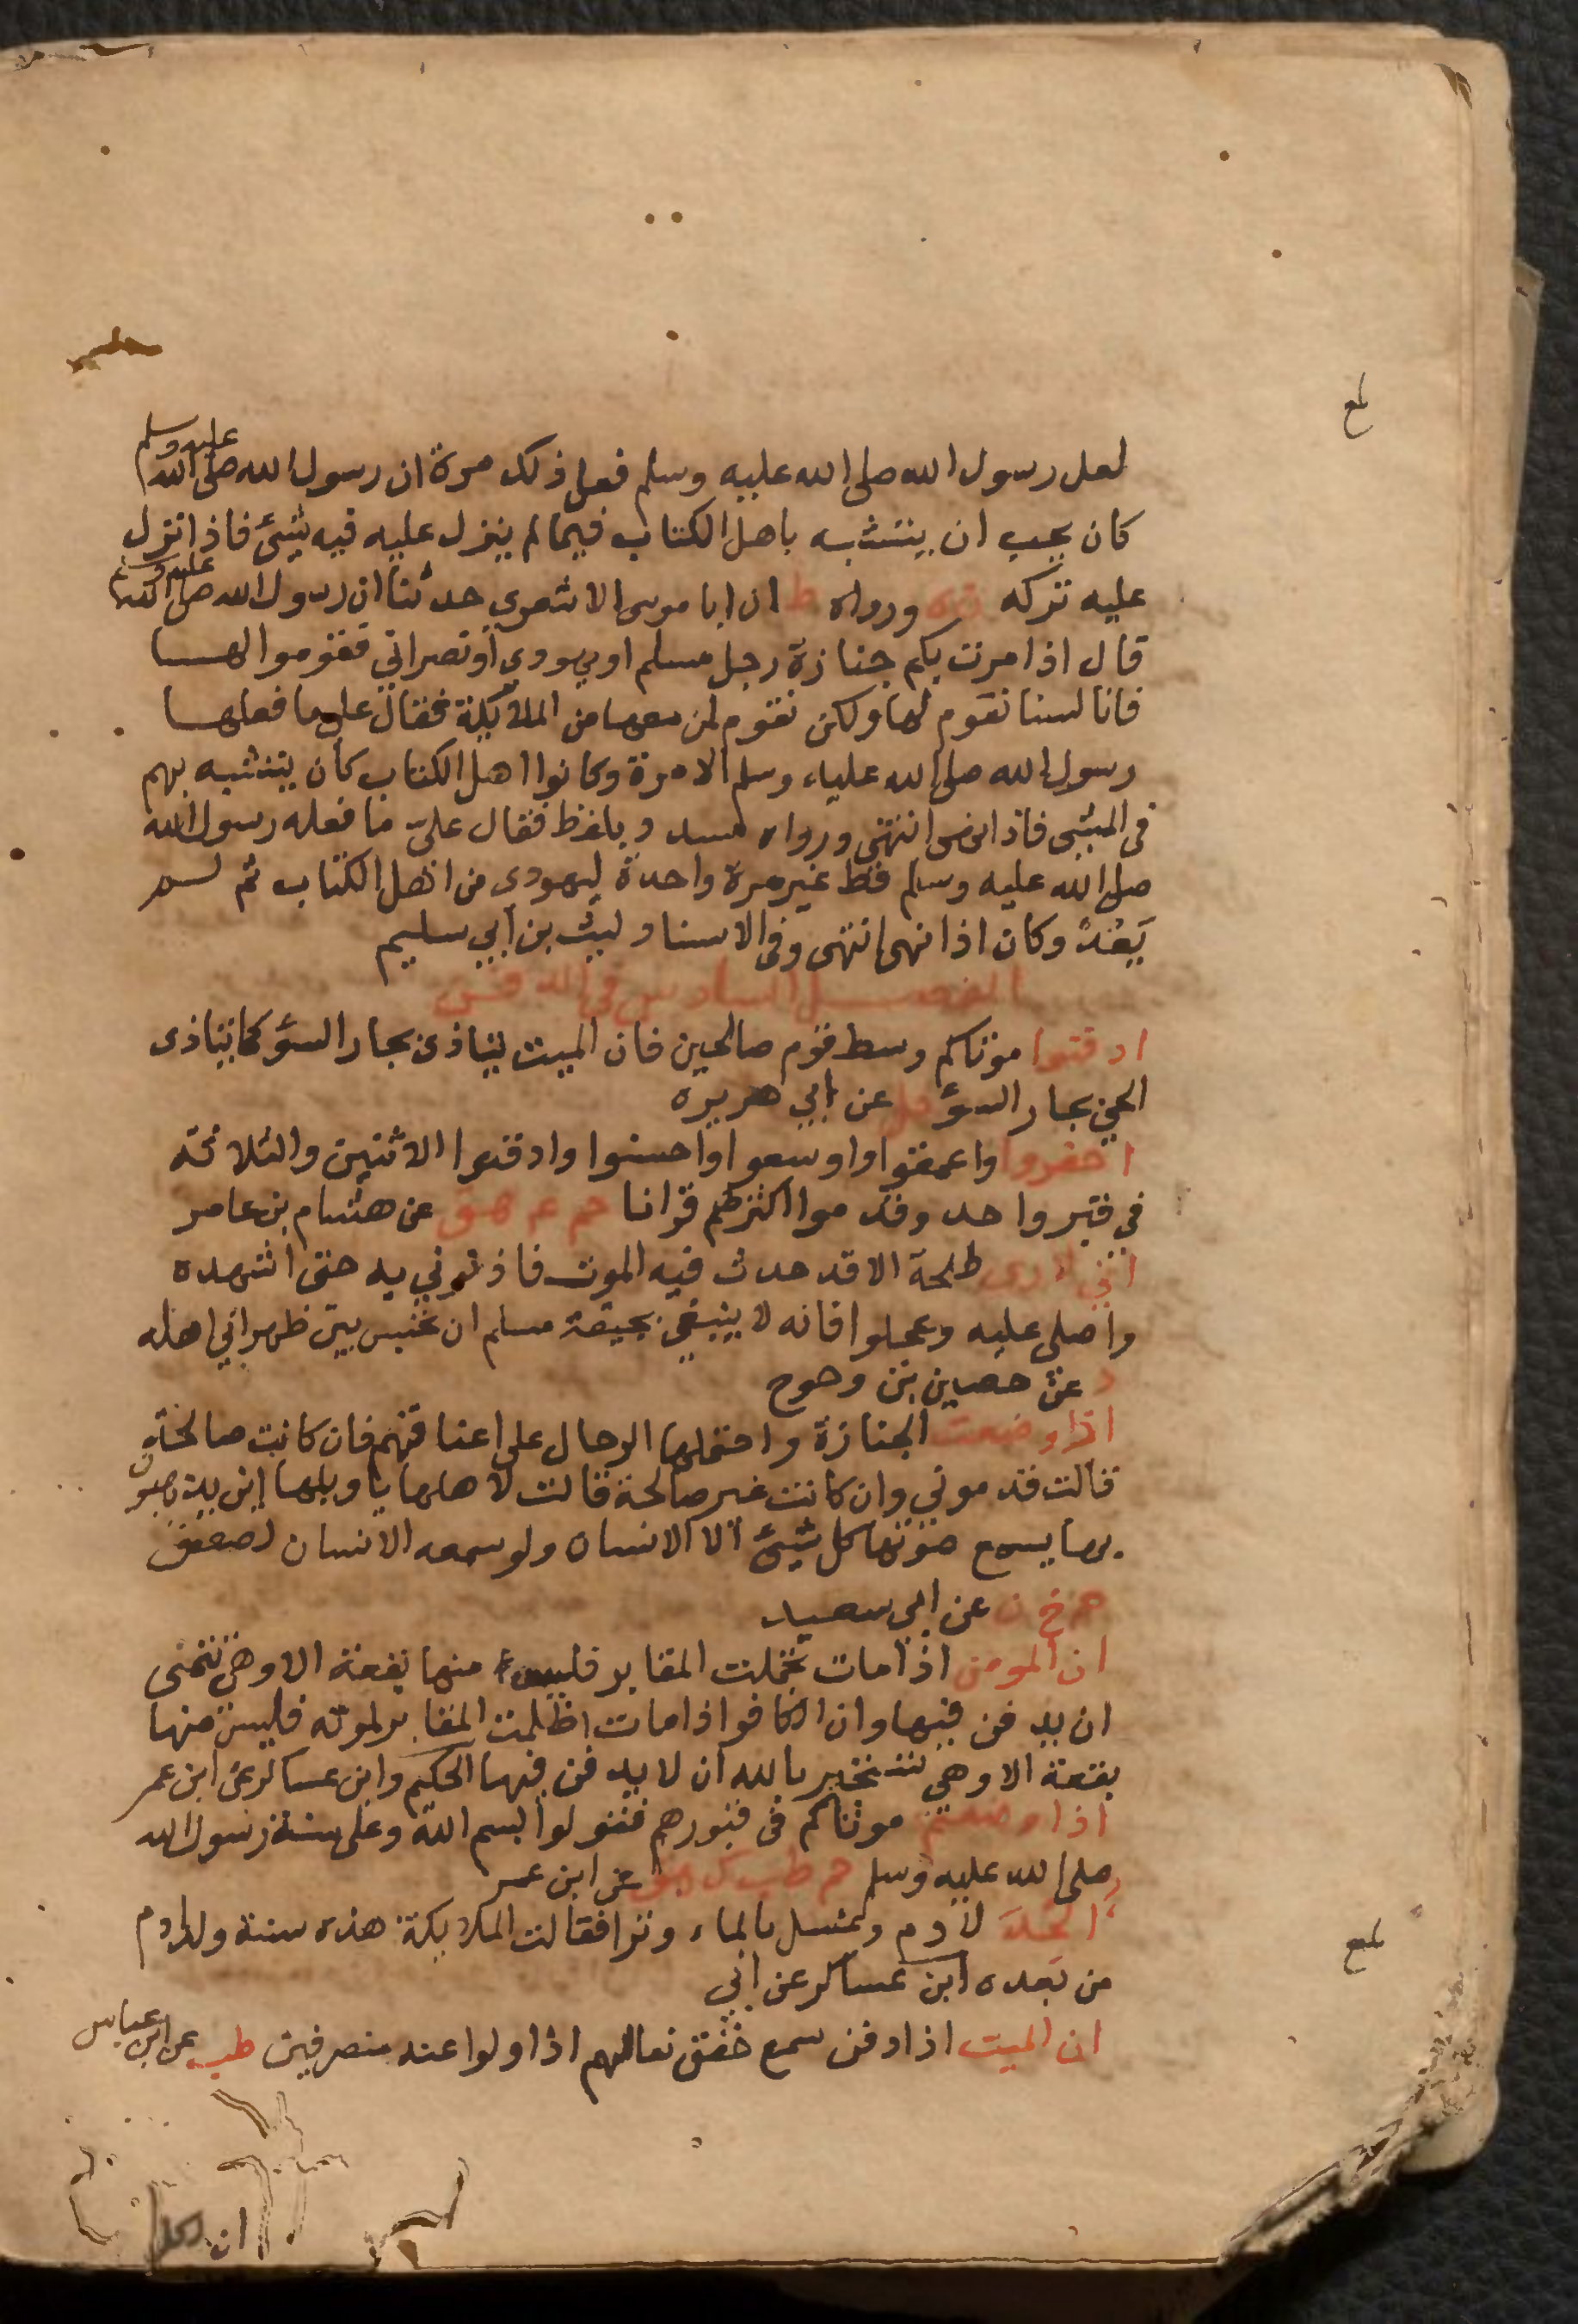 لعل رسول الله صلى الله عليه وسلم فعل ذلك مرة ان رسول الله صلى الله عليه وسلم
كان يحب ان يتشبه باهل الكتاب فيما لم ينزل عليه فيه شيئ فاذا نزل
عليه تركه ورواه ط ان ابا موسى الاشعري حدثنا ان رسول الله صلى الله عليه وسلم
قال اذا مرت بكم جنازة رجل مسلم او يهودي او نصراني فقوموا لها
فانا لسنا نقوم لها ولكن نقوم لمن معها من الملائكة فقال على ما فعلها
رسول الله صلى الله عليه وسلم الا مرة وكانوا اهل الكتاب كان يتشبه بهم
في الشي فاذا نهى انتهى ورواه مسدد وبلفظ فقال علي ما فعله رسول الله
صلى الله عليه وسلم قط غير مرة واحدة ليهودي من اهل الكتاب ثم لم
يَعُدْ وكان اذا نهى انتهى وفي الاسناد ليث بن ابي سليم
الفصل السادس في الدفن
ادفنوا موتاكم وسط قوم صالحين فان الميت يتاذى بجار السؤ كما يتاذى
الحي بجار السؤ حل عن ابي هريرة
احفروا واعمقوا واوسعوا واحسنوا وادفنوا الاثنين والثلاثة
في قبر واحد وقدموا اكثرهم قرانا حم عم هق عن هشام بن عامر
اني لا ارى طلحة الا قد حدث فيه الموت فاذنوني به حتى اشهده
واصلي عليه وعجلوا فانه لا ينبغي بجيفة مسلم ان تحبس بين ظهراني اهله
د عن حصين بن وحوح
اذا وضعت الجنازة واحتملها الرجال على اعناقهم فان كانت صالحة
قالت قدموني وان كانت غير صالحة قالت لاهلها يا ويلها اين يذهبون
بها يسمع صوتها كل شيئ الا الانسان ولو سمعه الانسان لصعق
حم خ ن عن ابي سعيد
ان المومن اذا مات تجملت المقابر فليس منها بقعة الا وهي تتمنى
ان يدفن فيها وان الكافر اذا مات اظلمت المقابر لموته فليس منها
بقعة الا وهي تستجير بالله ان لا يدفن فيها الحكيم وابن عساكر عن ابن عمر
اذا وضعتم موتاكم في قبورهم فقولوا بسم الله وعلى سنة رسول الله
صلى الله عليه وسلم حم طب ك هق عن ابن عمر
الحد لادم وغسل بالماء وترا فقالت الملائكة هذه سنة ولد ادم
من بعده ابن عساكر عن ابي
ان الميت اذا دفن سمع خفق نعالهم اذا ولوا عنه منصرفين طب عن ابن عباس